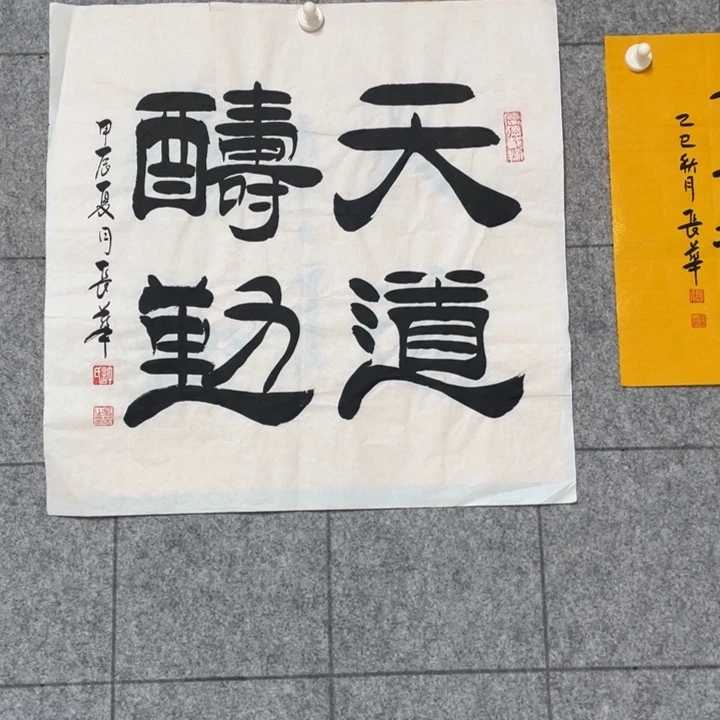 天道
醻勤
甲辰夏月長華
乙巳秋月
長華